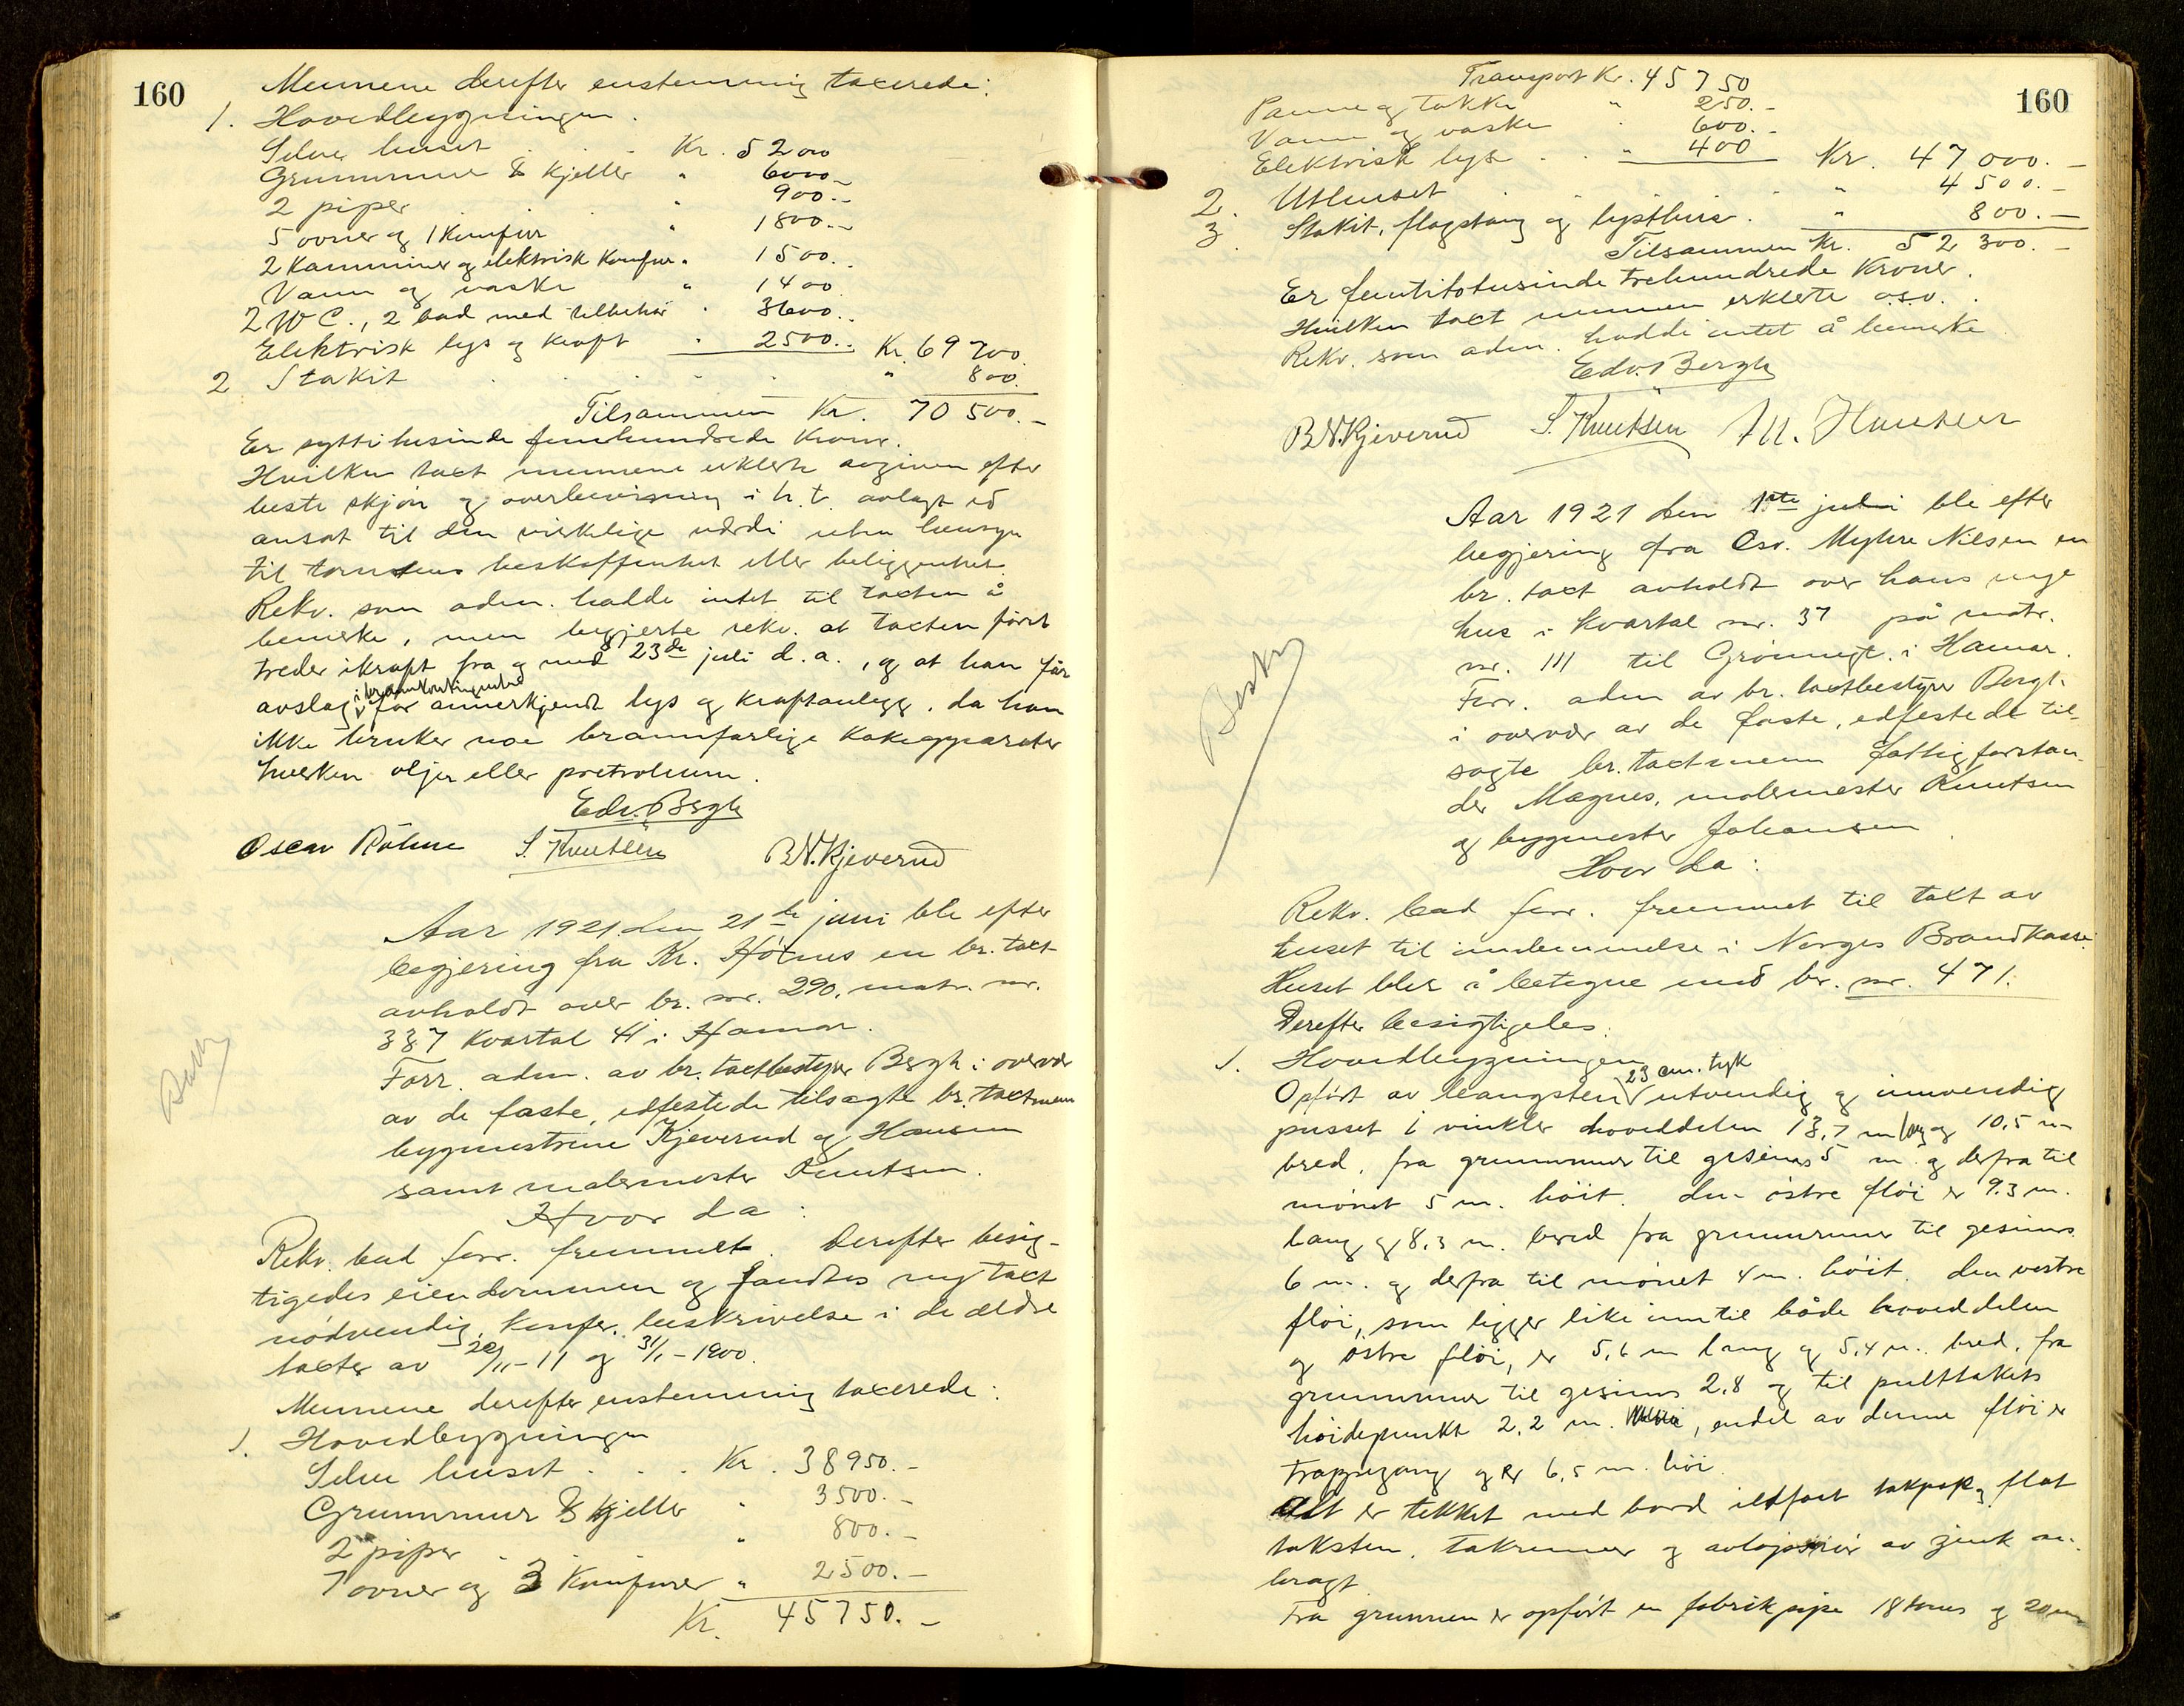 160
Mennene derefter enstemmig taxerede:
1. Hovedbygningen.
Selve huset . . . Kr. 52000
Grunnmur & Kjeller " 6000.-
2 piper . . " 900.-
5 ovner og 1 Komfur " 1800.-
2 Kamminer og elektrisk Komfur " 1500.-
Vann og vaske " 1400
2 W C., 2 bad med tilbehør " 3600.-
Elektrisk lys og kraft " 2500.- Kr. 69700.
2 Stakit . . . . . " 800.
Tilsammen Kr. 70500.-
Er sytti tusinde femhundrede Kroner.
Hvilken taxt mennene erklerte avgiven efter
beste skjøn og overbevisning i h. t. avlagt ed
ansat til den virkelige verdi uten hensyn
til tomtens beskaffenhet eller beliggenhet.
Rekv. som adm. hadde intet til taxten å
bemerke, men begjerte rekv. at taxten først
treder ikraft fra og med 23de juli d. a., og at han får
avslag i brannkontingenten for annerkjendt lys og kraftanlegg, da han
ikke bruker noe brannfarlige kokeapparater
hverken oljer eller poetroleum.
Edv. Bergh
Oscar Röhne S. Knutsen B. N. Kjeverud
Aar 1921 den 21de juni ble efter
begjering fra Kr. Hötnes en br. taxt
avholdt over br. nr. 290, matr. nr.
337 Kvartal 41 i Hamar.
Forr. adm. av br. taxtbestyrer Bergh i overvær
av de faste, edfestede tilsagte br. taxtmenn
bygmestrene Kjeverud og Hansen
samt malermester Knutsen.
Hvor da:
Rekv. bad forr. fremmet. Derefter besig-
tigedes eiendommen og fandtes ny taxt
nødvendig, konfer. beskrivelse i de ældre
taxter av 20/11-11 og 31/1-1900.
Mennene derefter enstemmig taxerede:
1. Hovedbygningen
Selve huset . . . Kr. 38950.-
Grunnmur & Kjeller " 3500.-
2 piper . " 800.-
7 ovner og 3 Komfurer " 2500.-
Kr. 45750.-
160
Transport Kr. 45750
Panne og takke " 250.-
Vann og vaske " 600.-
Elektrisk lys . . " 400 Kr. 47000.-
2. Uthuset . . . " 4500.-
3. Stakit, flagstang og lysthus . " 800.-
Tilsammen Kr. 52300.-
Er femtitotusinde trehundrede Kroner.
Hvilken taxt mennen erklerte o.s.v.
Rekv. som adm. hadde intet å bemerke.
Edv. Bergh
B. N. Kjeverud S. Knutsen M. Hansen
Aar 1921 den 1ste juli ble efter
begjering fra Osv. Myhre Nilsen en
br. taxt avholdt over hans nye
hus i kvartal nr. 37 på matr.
nr. 111 til Grönnegt. i Hamar.
Forr. adm av br. taxtbestyrer Bergh
i overvær av de faste, edfestede til-
sagte br. taxtmenn fattigforstan-
der Magnes, malermester Knutsen
og bygmester Johansen
Hvor da:
Rekv. bad forr. fremmet til taxt av
huset til innlemmelse i Norges Brandkasse.
Huset blir å betegne med br. nr. 471.
Derefter besigtigedes:
1. Hovedbygningen
Opført av leangsten 23 cm. tyk utvendig og innvendig
pusset i vinkler hoveddelen 13,7 m lang og 10,5 m
bred, fra grunnmur til gesims 5 m. og derfra til
mönet 5 m. höit. den östre flöi er 9.3 m.
lang og 8,3 m. bred fra grunnmur til gesims
6 m. og derfra til mönet 4 m. höit. den vestre
flöi, som ligger like inntil både hoveddelen
og östre flöi, er 5,6 m lang og 5,4 m. bred, fra
grunnmur til gesims 2,8 og til pulttakets
höidepunkt 2,2 m. , endel av denne flöi er
trappegang og er 6,5 m. höi.
Alt er tekket med bord ildfast takpap og flat
taksten. Takrenner og avlöpsrör av zink an-
bragt
Fra grunnen er opført en fabrikpipe 18 toms og 20 cm